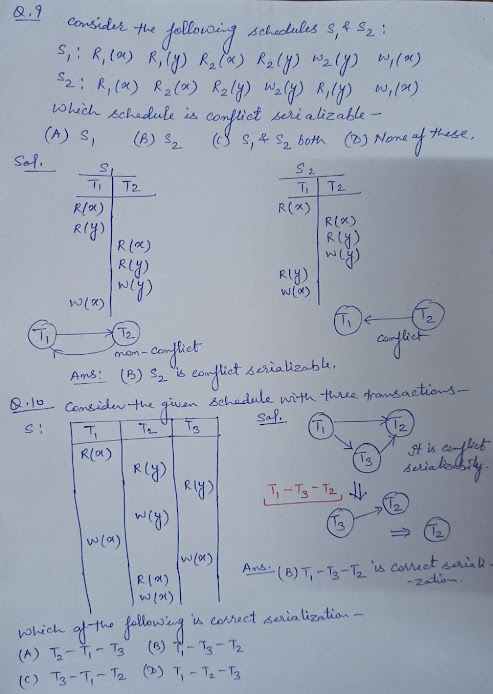 Q.9 Consider the following schedules S₁ & S₂ :
S₁ : R₁(x) R₁(y) R₂(x) R₂(y) W₂(y) W₁(x)
S₂ : R₁(x) R₂(x) R₂(y) W₂(y) R₁(y) W₁(x)
Which schedule is conflict serializable –
(A) S₁ (B) S₂ (C) S₁ & S₂ both (D) None of these.
Sol.
S₁
T₁ T₂
R(x)
R(y)
R(x)
R(y)
W(y)
W(x)
T₁ T₂
non-conflict
S₂
T₁ T₂
R(x)
R(x)
R(y)
W(y)
R(y)
W(x)
T₁ T₂
conflict
Ans: (B) S₂ is conflict serializable.
Q.10 Consider the given schedule with three transactions–
S:
T₁ T₂ T₃
R(x)
R(y)
R(y)
W(y)
W(x)
W(x)
R(x)
W(x)
Sol.
T₁ T₂
T₃
It is conflict
serializability.
T₁ – T₃ – T₂
T₃ T₂ ⇒ T₂
Ans: (B) T₁ – T₃ – T₂ is correct seriali-
-zation.
Which of the following is correct serialization –
(A) T₂ – T₁ – T₃ (B) T₁ – T₃ – T₂
(C) T₃ – T₁ – T₂ (D) T₁ – T₂ – T₃